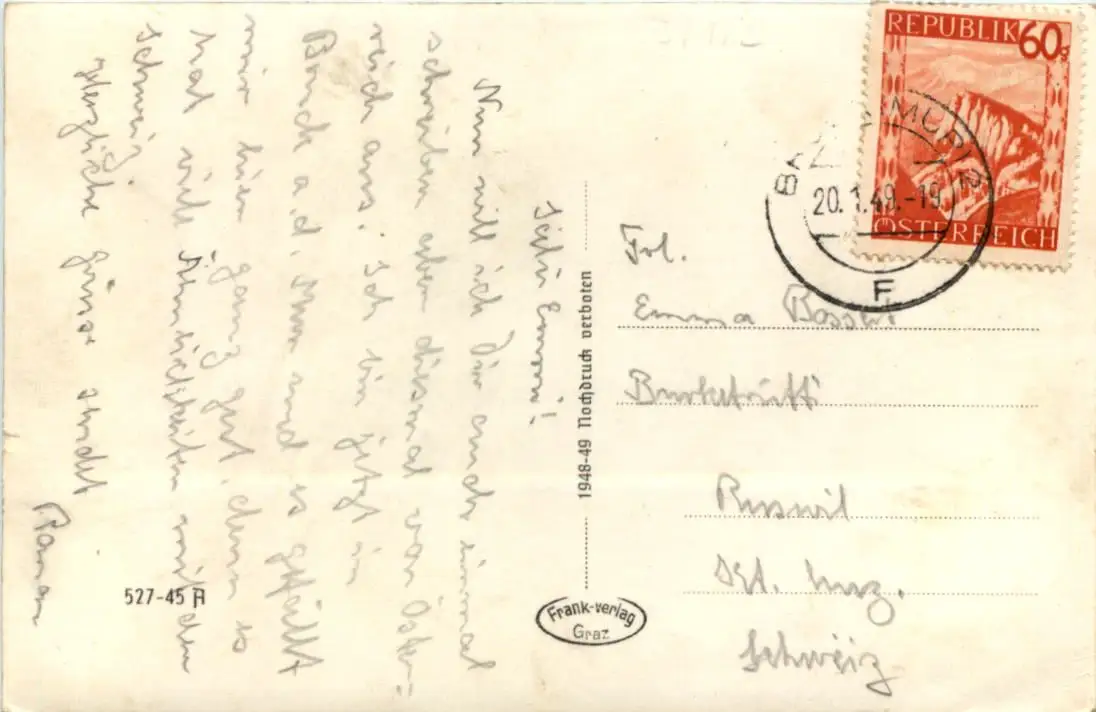 Nun will ich Dir auch einmal
schreiben eben diesmal von Öster-
reich aus. Ich bin jetzt in
Bruck a. d. Mur und es gefällt
mir hier ganz gut, denn es
hat viele Ähnlichkeiten mit der
Schweiz.
Herzliche Grüsse sendet
Roman
527-45 A
1948-49 Nachdruck verboten
Frank-verlag
Graz
REPUBLIK 60g
ÖSTERREICH
MUR
20.1.49.-19
F
Frl.
Emma
Ruswil
Kt. Luz.
Schweiz